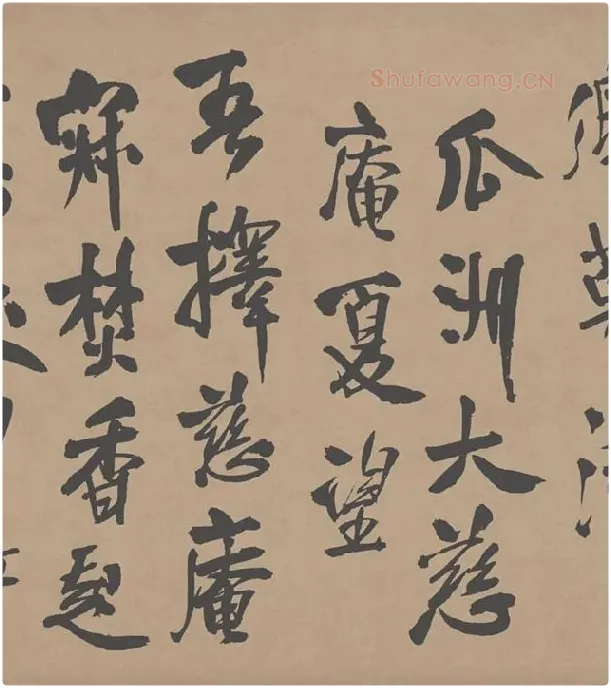 Shufawang.CN
瓜洲大慈
庵夏望
吾擇慈庵
寐焚香起